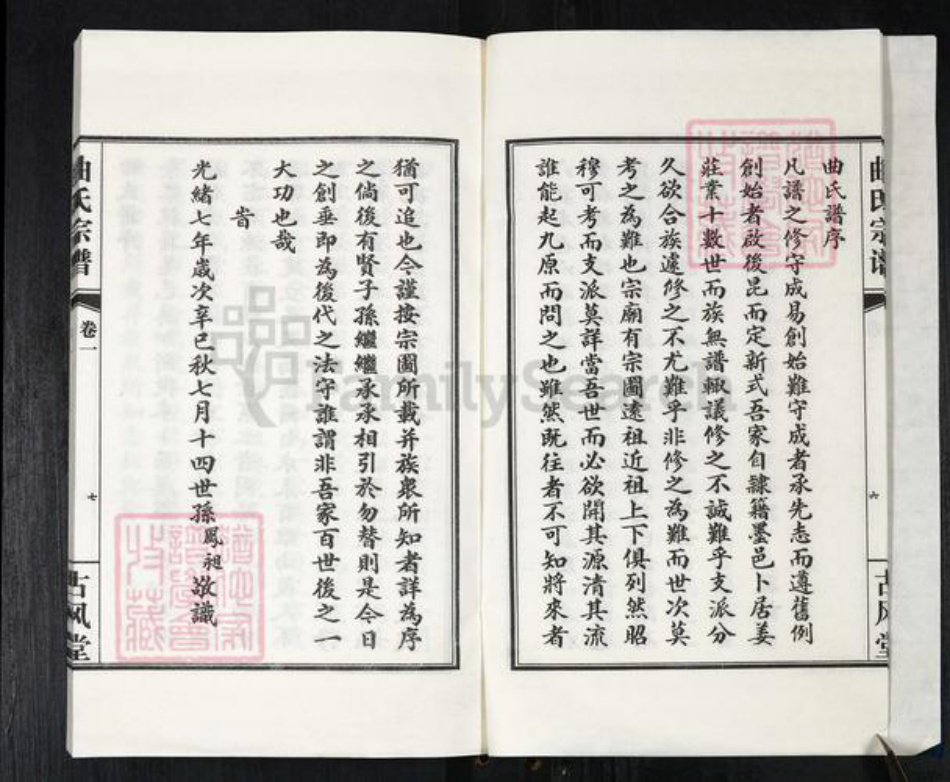 曲氏譜序
凡譜之修守成易創始難守成者承先志而遵舊例
創始者啟後昆而定新式吾家自隸籍墨邑卜居姜
莊業十數世而族無譜輒議修之不誠難乎支派分
久欲合族遽修之不尤難乎非修之為難而世次莫
考之為難也宗廟有宗圖遠祖近祖上下俱列然昭
穆可考而支派莫詳當吾世而必欲開其源清其流
誰能起九原而問之也雖然既往者不可知將來者
六
猶可追也今謹按宗圖所載并族衆所知者詳為序
之倘後有賢子孫繼繼承承相引於勿替則是今日
之創垂即為後代之法守誰謂非吾家百世後之一
大功也哉
旹
光緒七年歲次辛巳秋七月十四世孫鳳昶敬識
曲氏宗譜
卷一
七
古风堂
曲氏宗谱
古风堂
FamilySearch